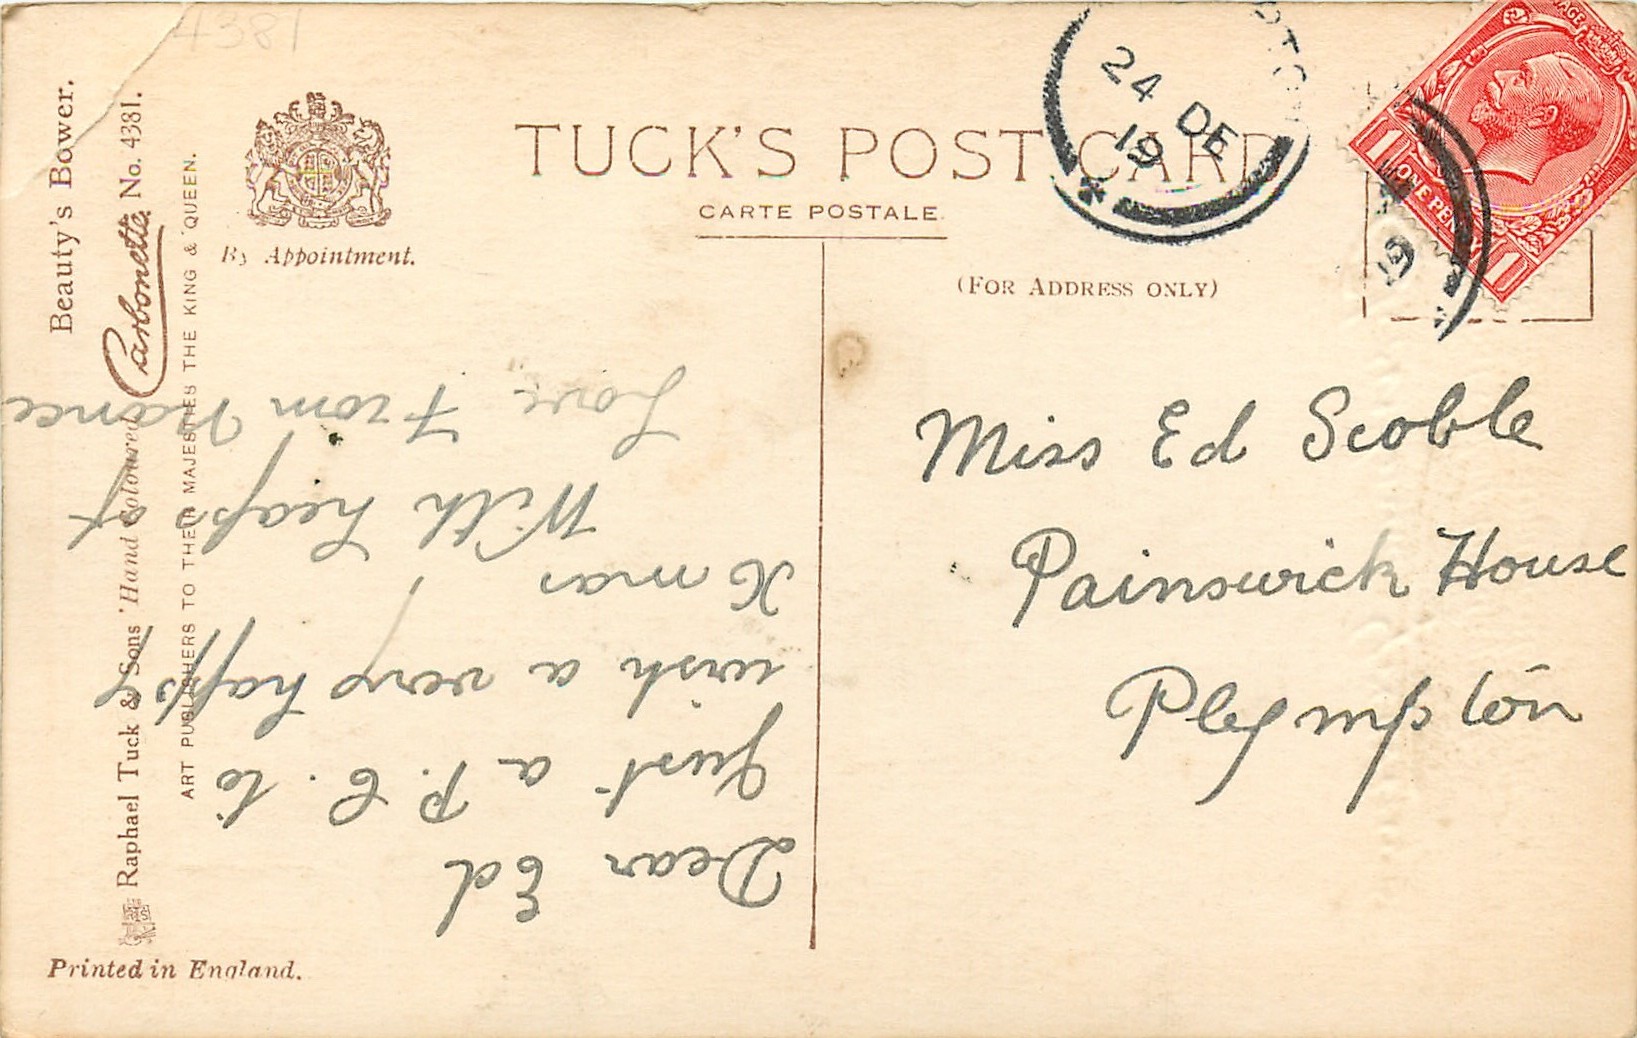 4381
Beauty's Bower.
Raphael Tuck & Sons' Hand Coloured Carbonette No. 4381.
ART PUBLISHERS TO THEIR MAJESTIES THE KING & QUEEN.
By Appointment.
TUCK'S POST CARD
CARTE POSTALE.
(FOR ADDRESS ONLY)
24 DE
19
ONE PENNY
1 1
19
Dear Ed
Just a P.C. to
wish a very happy
Xmas
With heaps of
Love From
Miss Ed Scoble
Painswick House
Plympton
Printed in England.